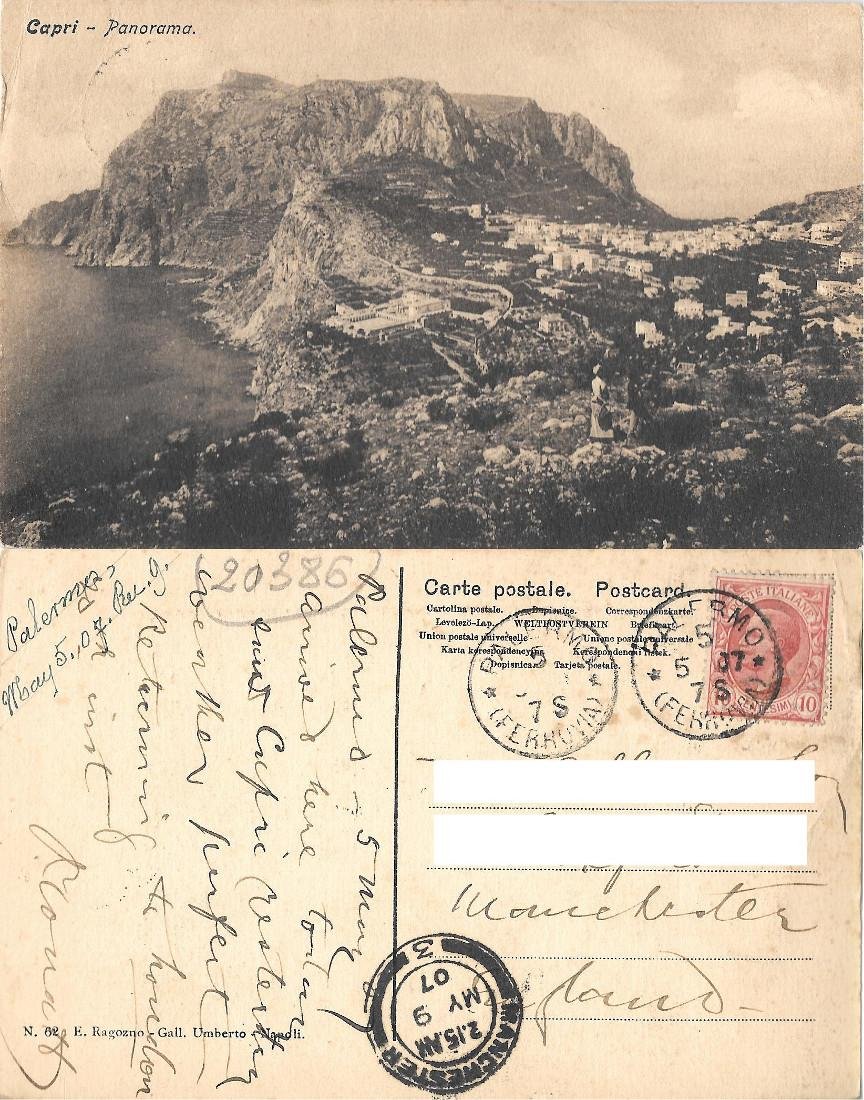 Capri - Panorama.
20386
Palermo,
May 5. 07. Rec. 9.
Palermo - 5 May 07
Arrived here today
Capri yesterday
weather perfect
Returning to London
inst
Carte postale. Postcard.
Cartolina postale. Dopisnice. Correspondenzkarte.
Levelező-Lap. WELTPOSTVEREIN Briefkaart.
Union postale universelle Unione postale universale
Karta korespondencyjna Korespondencni listek.
Dopisnica Tarjeta postale.
PALERMO
5
7 S
(FERROVIA)
PALERMO
5
5 07
7 S
(FERROVIA)
POSTE ITALIANE
CENTESIMI 10
Manchester
England
MANCHESTER
2.15 PM
9
MY
07
3
N. 62 E. Ragozno - Gall. Umberto - Napoli.